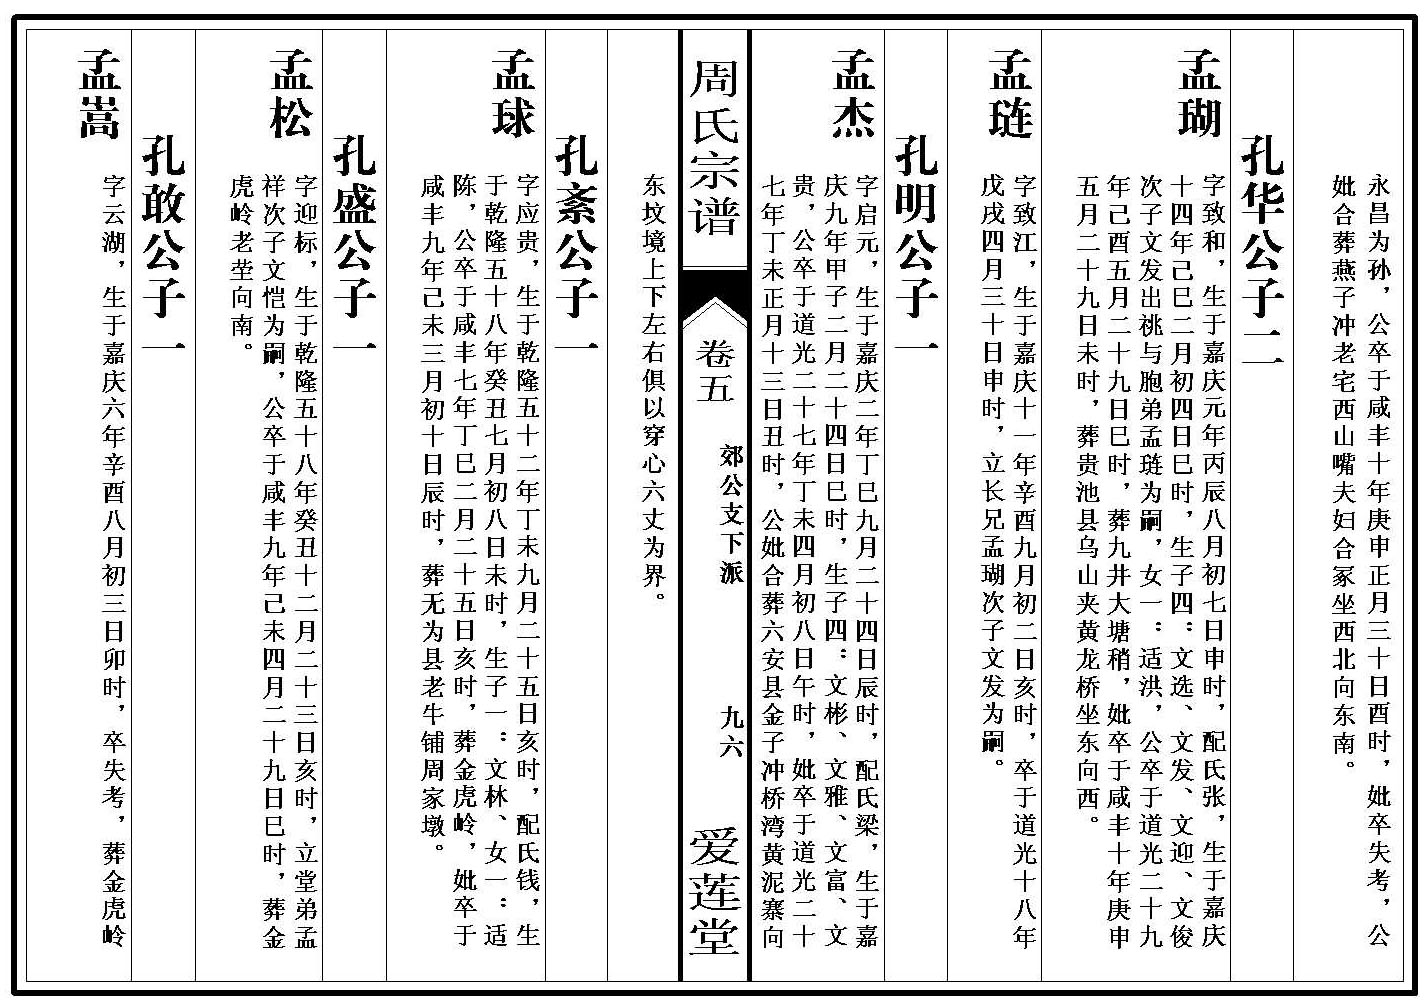 永昌为孙，公卒于咸丰十年庚申正月三十日酉时，妣卒失考，公
妣合葬燕子冲老宅西山嘴夫妇合冢坐西北向东南。
孔华公子二
孟瑚
字致和，生于嘉庆元年丙辰八月初七日申时，配氏张，生于嘉庆
十四年己巳二月初四日巳时，生子四：文选、文发、文迎、文俊
次子文发出祧与胞弟孟琏为嗣，女一：适洪，公卒于道光二十九
年己酉五月二十九日巳时，葬九井大塘稍，妣卒于咸丰十年庚申
五月二十九日未时，葬贵池县乌山夹黄龙桥坐东向西。
孟琏
字致江，生于嘉庆十一年辛酉九月初二日亥时，卒于道光十八年
戊戌四月三十日申时，立长兄孟瑚次子文发为嗣。
孔明公子一
孟杰
字启元，生于嘉庆二年丁巳九月二十四日辰时，配氏梁，生于嘉
庆九年甲子二月二十四日巳时，生子四：文彬、文雅、文富、文
贵，公卒于道光二十七年丁未四月初八日午时，妣卒于道光二十
七年丁未正月十三日丑时，公妣合葬六安县金子冲桥湾黄泥寨向
周氏宗谱
卷五
郊公支下派
九六
爱莲堂
东坟境上下左右俱以穿心六丈为界。
孔紊公子一
孟球
字应贵，生于乾隆五十二年丁未九月二十五日亥时，配氏钱，生
于乾隆五十八年癸丑七月初八日未时，生子一：文林、女一：适
陈，公卒于咸丰七年丁巳二月二十五日亥时，葬金虎岭，妣卒于
咸丰九年己未三月初十日辰时，葬无为县老牛铺周家墩。
孔盛公子一
孟松
字迎标，生于乾隆五十八年癸丑十二月二十三日亥时，立堂弟孟
祥次子文恺为嗣，公卒于咸丰九年己未四月二十九日巳时，葬金
虎岭老茔向南。
孔敢公子一
孟嵩
字云湖，生于嘉庆六年辛酉八月初三日卯时，卒失考，葬金虎岭